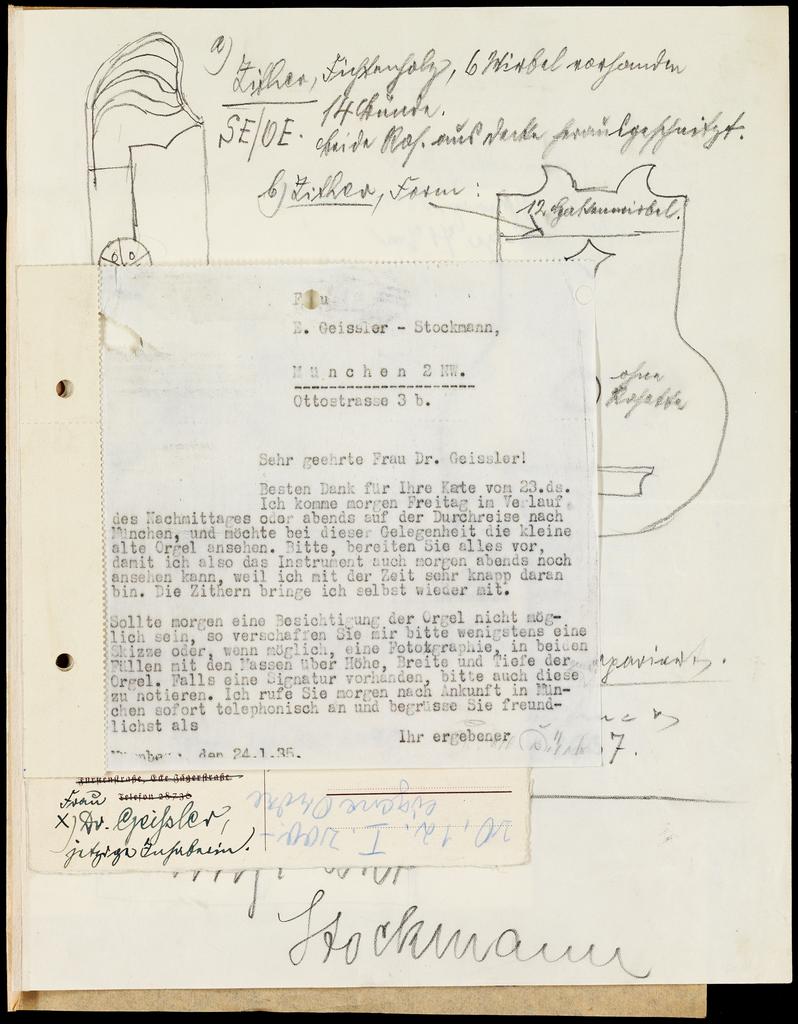 a) Zither, Fichtenholz, 6 Wirbel vorhanden
SE/OE. 14 Bünde.
beide Ros. aus Decke herausgeschnitzt.
b) Zither, Form:
12 Hakenwirbel.
ohne
Rosette
F u
E. Geissler - Stockmann,
München 2 NW.
Ottostrasse 3 b.
Sehr geehrte Frau Dr. Geissler!
Besten Dank für Ihre Kate vom 23.ds.
Ich komme morgen Freitag im Verlauf
des Nachmittages oder abends auf der Durchreise nach
München, und möchte bei dieser Gelegenheit die kleine
alte Orgel ansehen. Bitte, bereiten Sie alles vor,
damit ich also das Instrument auch morgen abends noch
ansehen kann, weil ich mit der Zeit sehr knapp daran
bin. Die Zithern bringe ich selbst wieder mit.
Sollte morgen eine Besichtigung der Orgel nicht mög-
lich sein, so verschaffen Sie mir bitte wenigstens eine
Skizze oder, wenn möglich, eine Fotokgraphie, in beiden
Fällen mit den Massen über Höhe, Breite und Tiefe der
Orgel. Falls eine Signatur vorhanden, bitte auch diese
zu notieren. Ich rufe Sie morgen nach Ankunft in Mün-
chen sofort telephonisch an und begrüsse Sie freund-
lichst als
Ihr ergebener
7.
den 24.1.35.
Fürstenstraße, Ecke Jägerstraße
Telefon 28736
Frau
x) Dr. Geißler,
jetzige Inhaberin.
eigene Ordre
Stockmann